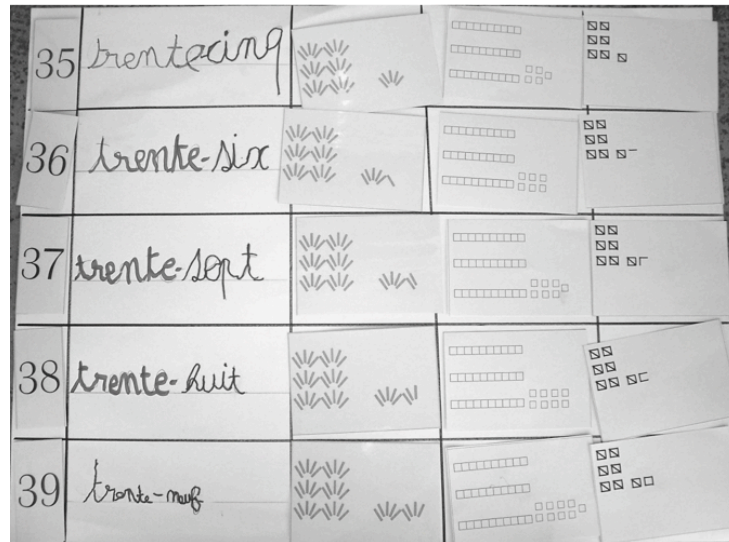 35 trente-cinq
36 trente-six
37 trente-sept
38 trente-huit
39 trente-neuf